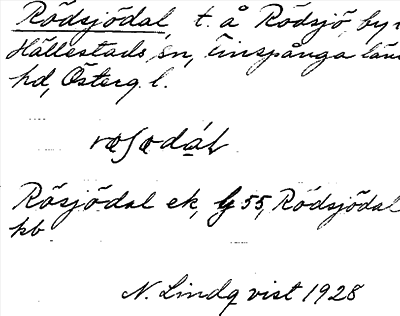 Rödsjödal, t. å Rödsjö, by i
Hällestads sn, Finspånga län
hd, Österg. l.
Rösjödal ek, G 55, Rödsjödal
kb
N. Lindqvist 1928